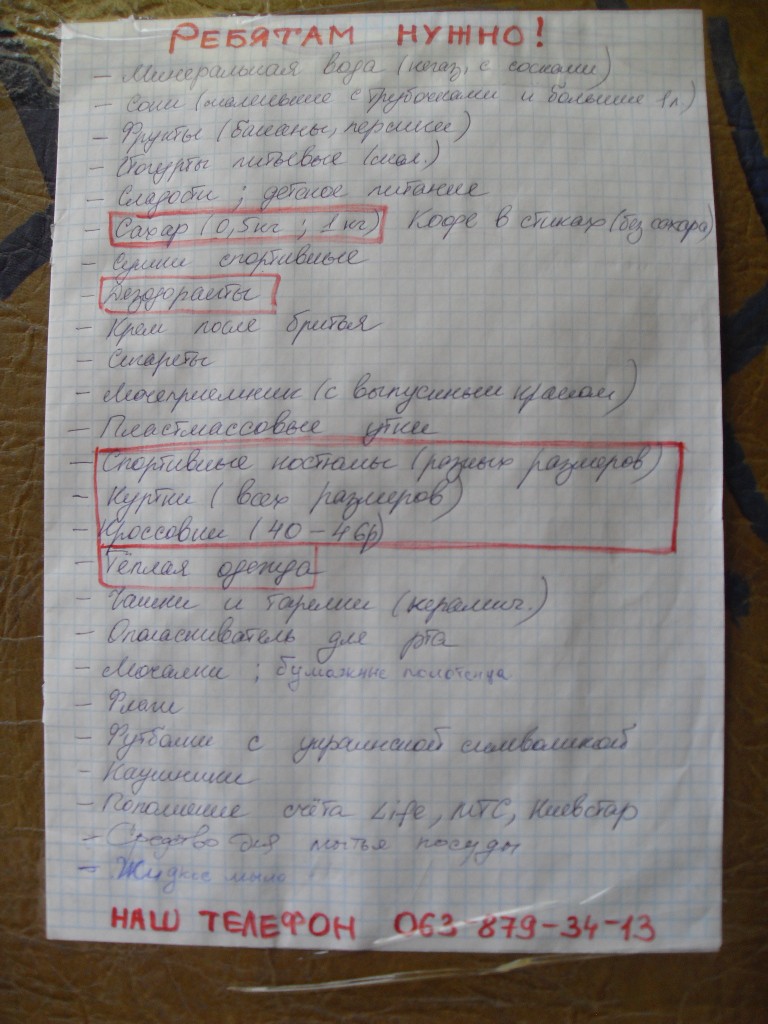 РЕБЯТАМ НУЖНО!
- Минеральная вода (негаз, с сосками)
- Соки (маленькие с трубочками и большие 1л.)
- Фрукты (бананы, персики)
- Йогурты питьевые
- Сладости; детское питание
- Сахар (0,5кг; 1кг) Кофе в стиках (без сахара)
- Сумки спортивные
- Дезодоранты
- Крем после бритья
- Сигареты
- Мочеприемник (с выпускным краном)
- Пластмассовые утки
- Спортивные костюмы (разных размеров)
- Куртки (всех размеров)
- Кроссовки (40-46р)
- Тёплая одежда
- Чашки и тарелки (керамич.)
- Ополаскиватель для рта
- Мочалки; бумажные полотенца
- Флаги
- Футболки с украинской символикой
- Наушники
- Пополнение счёта Life, МТС, Киевстар
- Средство для мытья посуды
- Жидкое мыло
НАШ ТЕЛЕФОН 063-879-34-13